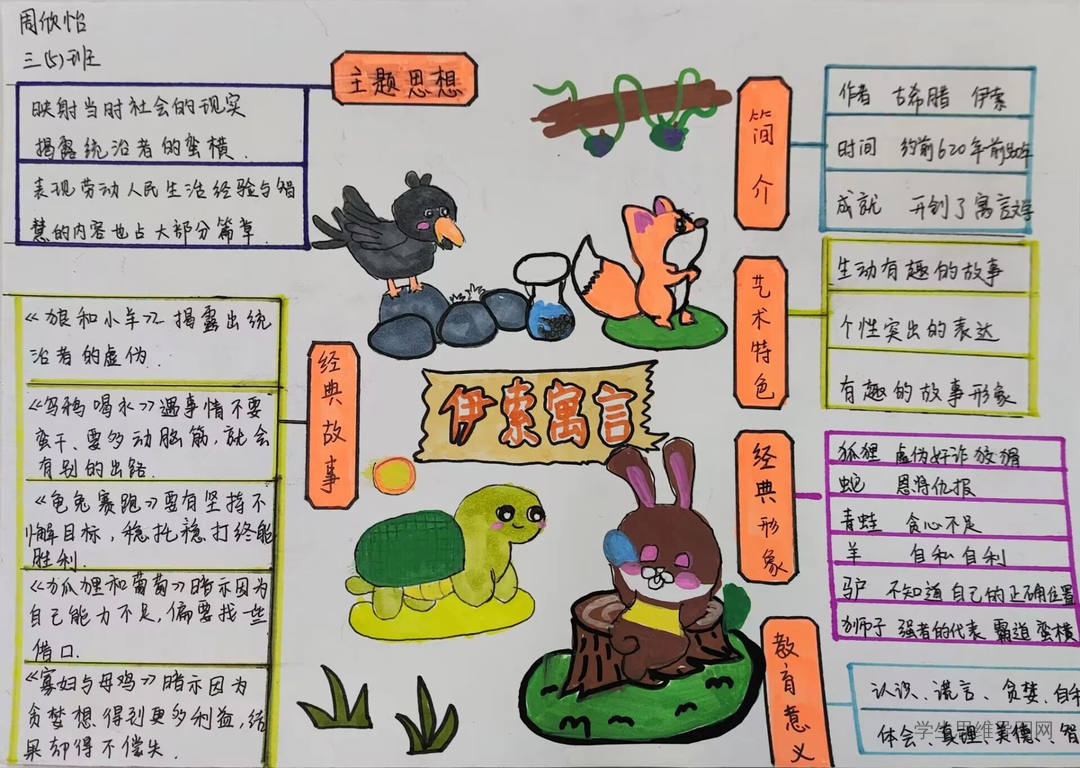 周欣怡
三(5)班
主题思想
映射当时社会的现实
揭露统治者的蛮横.
表现劳动人民生活经验与智
慧的内容也占大部分篇章.
经典故事
《狼和小羊》揭露出统
治者的虚伪.
《乌鸦喝水》遇事情不要
蛮干、要多动脑筋,就会
有别的出路.
《龟兔赛跑》要有坚持不
懈目标,稳扎稳打终能
胜利.
《狐狸和葡萄》暗示因为
自己能力不足,偏要找些
借口.
《寡妇与母鸡》暗示因为
贪梦想得到更多利益,结
果却得不偿失.
伊索寓言
简介
作者 古希腊 伊索
时间 约前620年前
成就 开创了寓言文学
艺术特色
生动有趣的故事
个性突出的表达
有趣的故事形象
经典形象
狐狸 虚伪奸诈狡猾
蛇 恩将仇报
青蛙 贪心不足
羊 自私自利
驴 不知道自己的正确位置
狮子 强者的代表 霸道 蛮横
教育意义
认识、谎言、贪婪、自私
体会、真理、美德、智